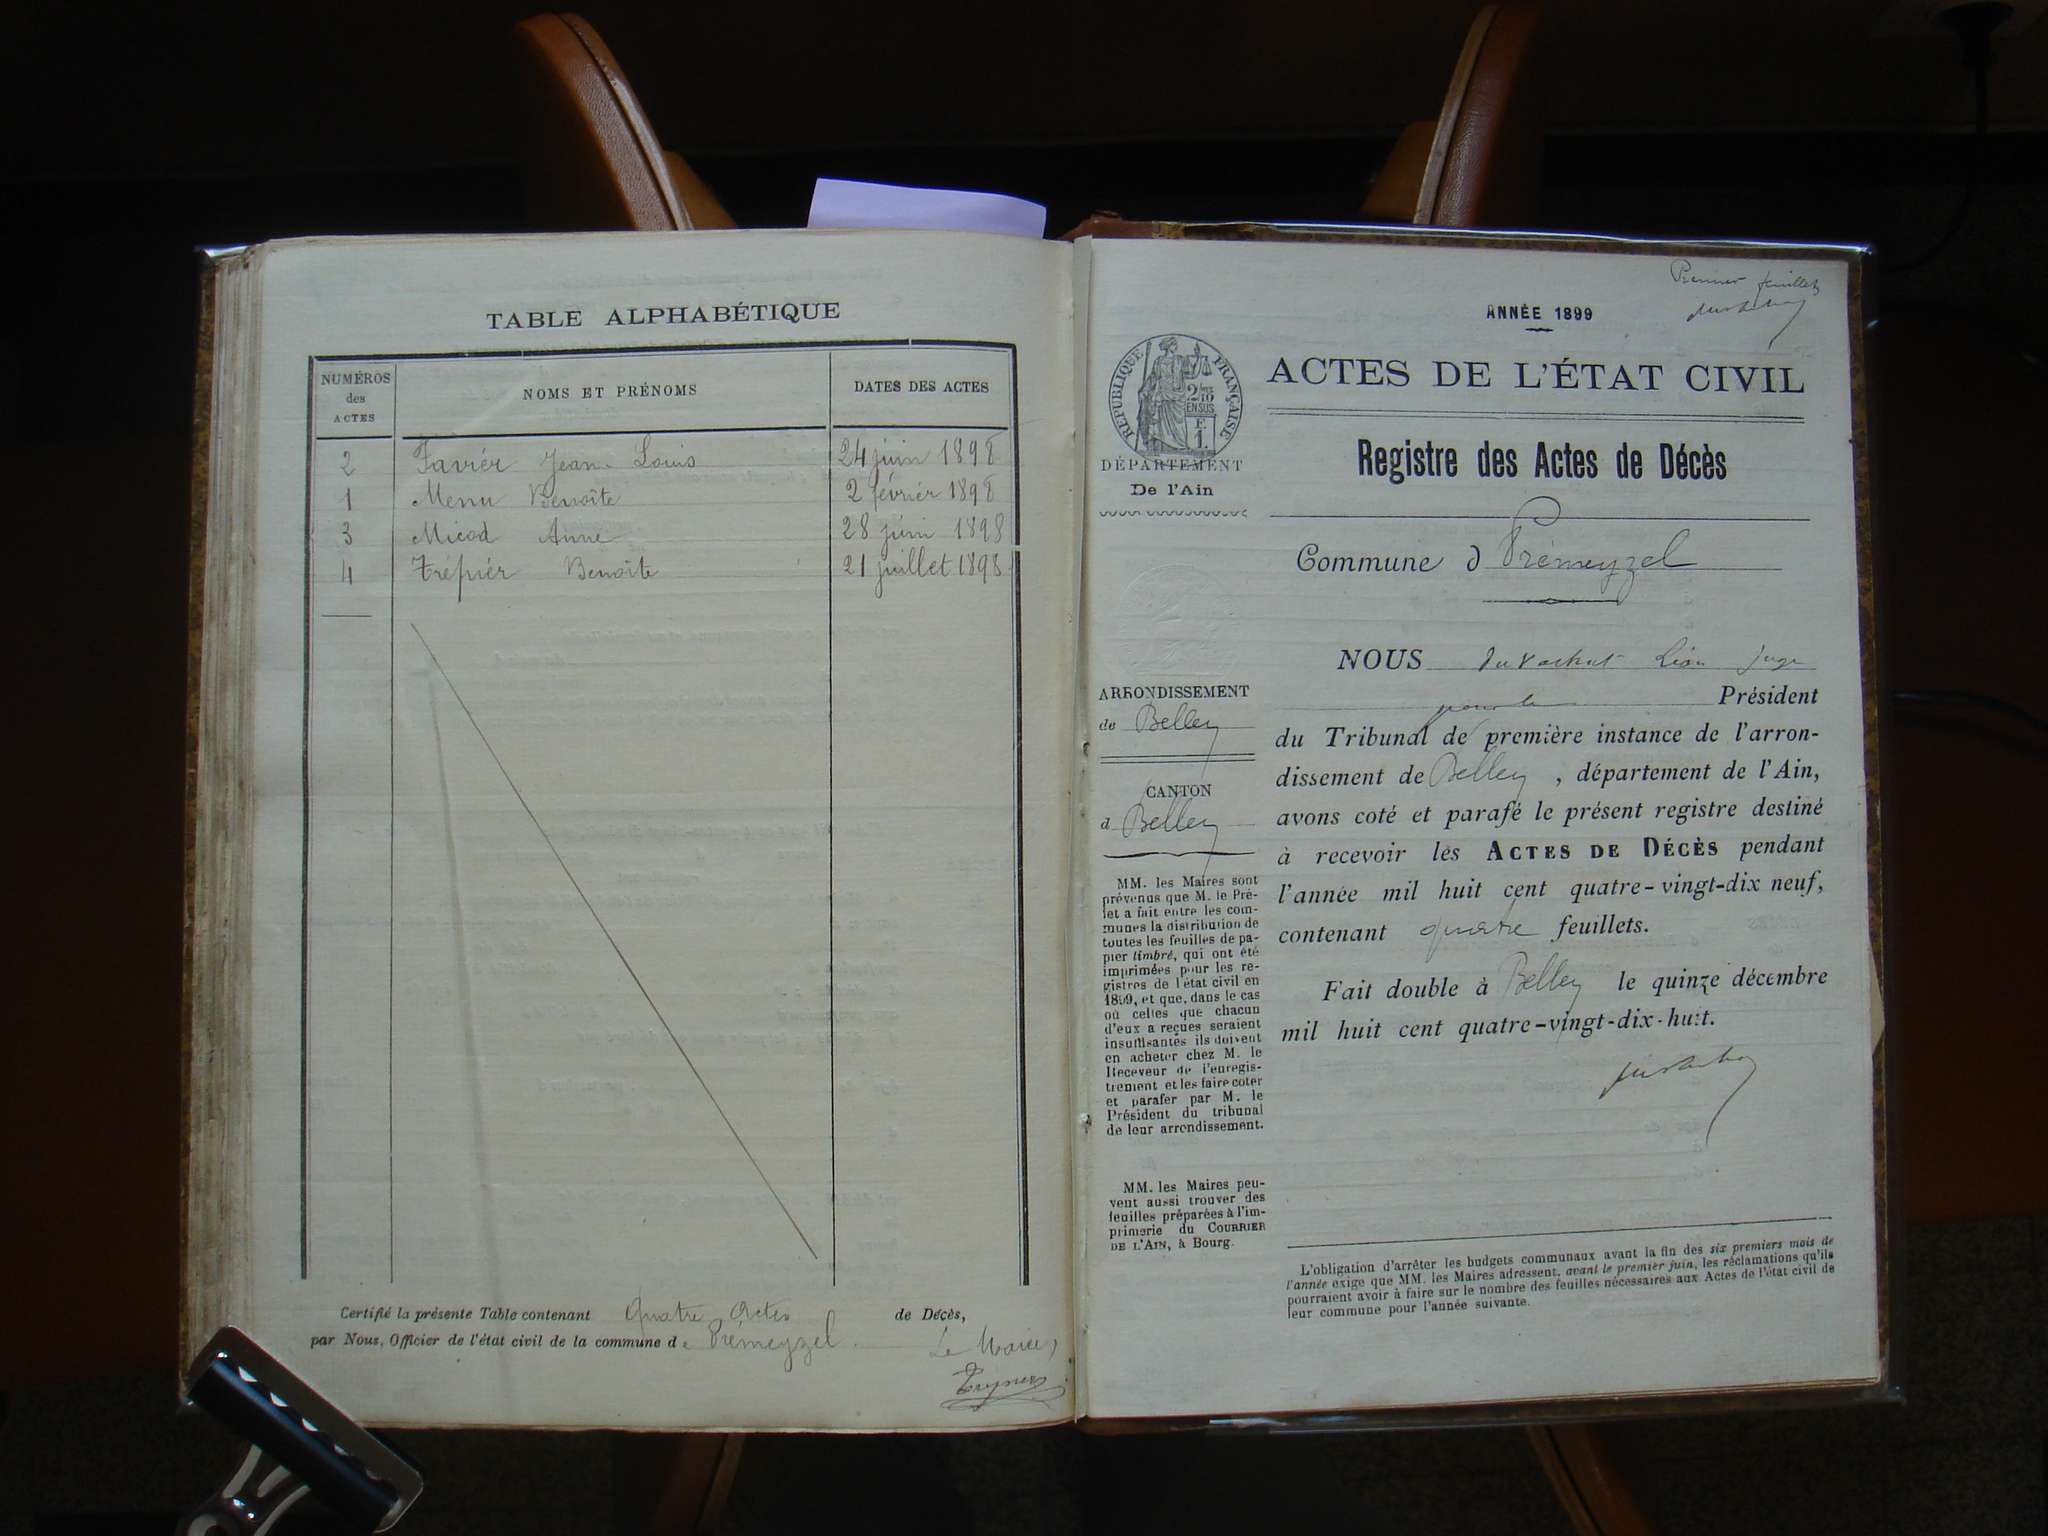 TABLE ALPHABÉTIQUE
NUMÉROS des ACTES
NOMS ET PRÉNOMS
DATES DES ACTES
2 Favier Jean-Louis 24 juin 1898
1 Menu Benoîte 2 février 1898
3 Micod Anne 28 juin 1898
4 Trépier Benoîte 21 juillet 1898
Certifié la présente Table contenant Quatre Actes de Décès,
par Nous, Officier de l'état civil de la commune de Prémeyzel.
Le Maire,
Premier feuillet
ANNÉE 1899
RÉPUBLIQUE FRANÇAISE
2/10
EN SUS
E
1.
DÉPARTEMENT
De l'Ain
ARRONDISSEMENT
de Belley
CANTON
d Belley
MM. les Maires sont
prévenus que M. le Pré-
fet a fait entre les com-
munes la distribution de
toutes les feuilles de pa-
pier timbré, qui ont été
imprimées pour les re-
gistres de l'état civil en
1899, et que, dans le cas
où celles que chacun
d'eux a reçues seraient
insuffisantes ils doivent
en acheter chez M. le
Receveur de l'enregis-
trement et les faire coter
et parafer par M. le
Président du tribunal
de leur arrondissement.
MM. les Maires peu-
vent aussi trouver des
feuilles préparées à l'im-
primerie du COURRIER
DE L'AIN, à Bourg.
ACTES DE L'ÉTAT CIVIL
Registre des Actes de Décès
Commune d Prémeyzel
NOUS Léon Juge
pour le Président
du Tribunal de première instance de l'arron-
dissement de Belley, département de l'Ain,
avons coté et parafé le présent registre destiné
à recevoir les ACTES DE DÉCÈS pendant
l'année mil huit cent quatre-vingt-dix neuf,
contenant quatre feuillets.
Fait double à Belley le quinze décembre
mil huit cent quatre-vingt-dix-huit.
L'obligation d'arrêter les budgets communaux avant la fin des six premiers mois de
l'année exige que MM. les Maires adressent, avant le premier juin, les réclamations qu'ils
pourraient avoir à faire sur le nombre des feuilles nécessaires aux Actes de l'état civil de
leur commune pour l'année suivante.